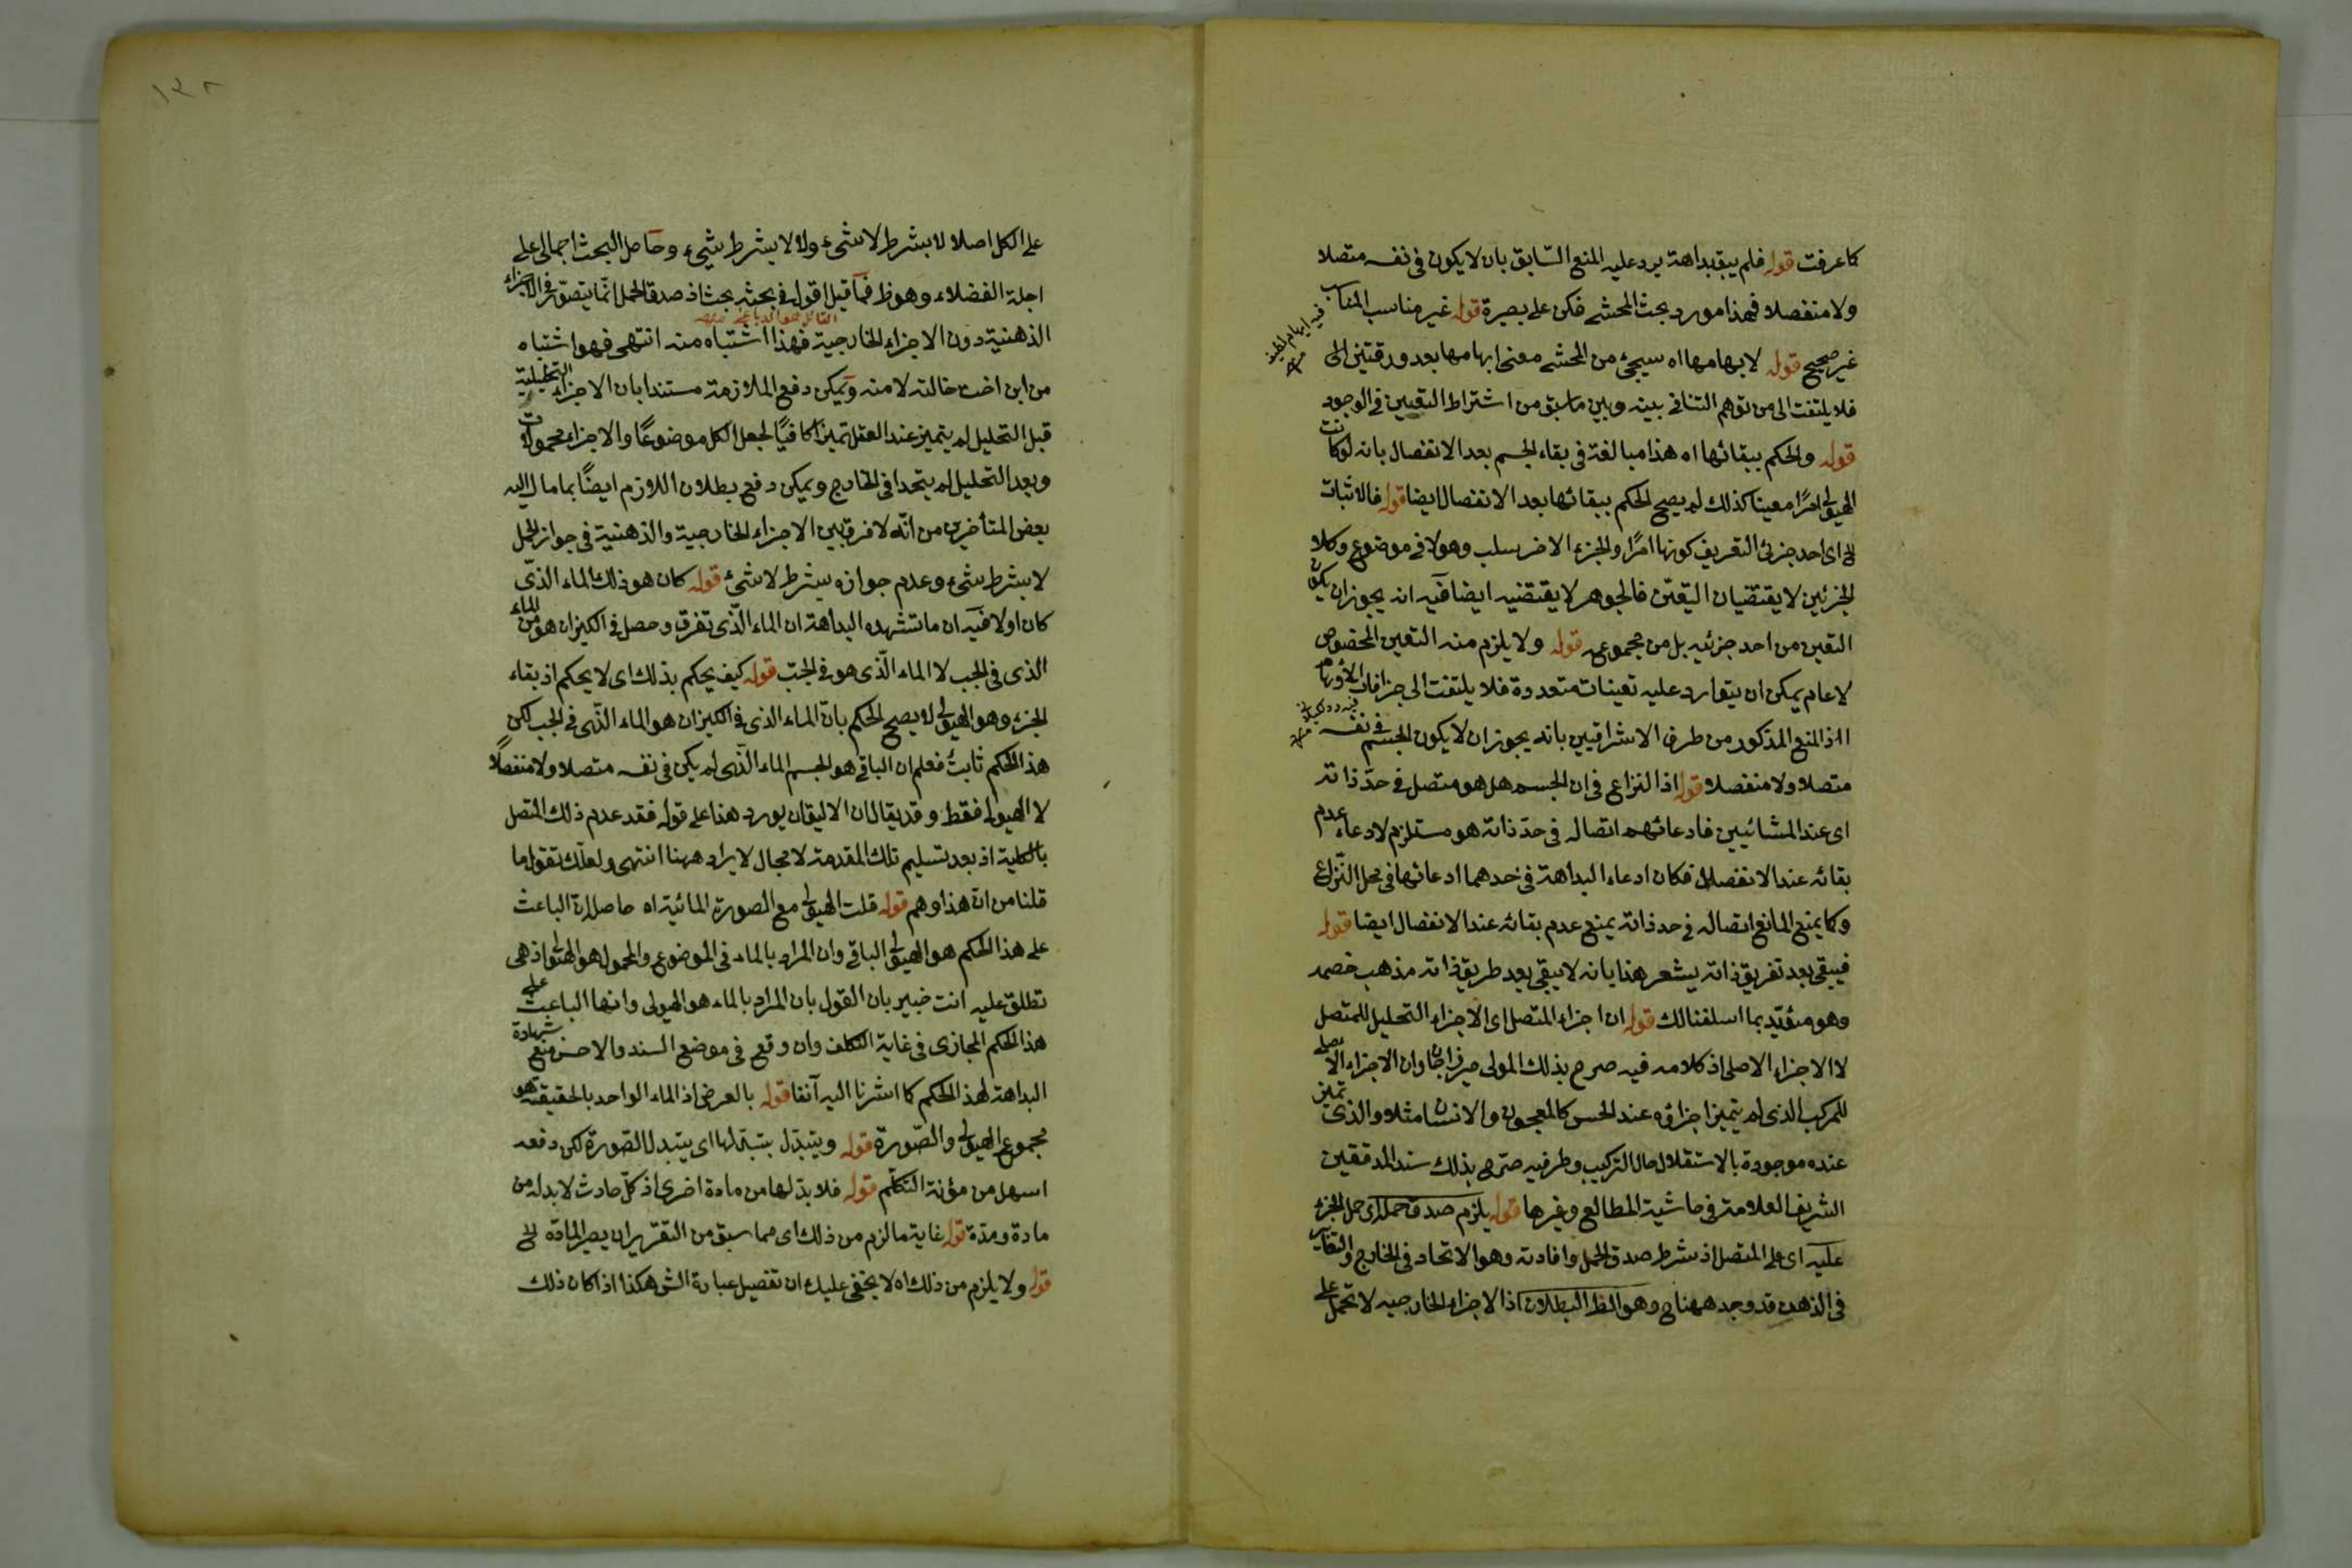 كما عرفت قوله فلم يبق بداهة يرد عليه المنع السّابق بان لا يكون فى نفسه متصلا
ولا منفصلا فهذا مورد بحث المحشى فكن على بصيرة قوله غير مناسب المناسب
غير صحيح قوله لابهامها اه سيجئ من المحشى معنى ابهامها بعد ورقتين الى
فلا يلتفت الى من توهم التنافى بينه وبين ما سبق من اشتراط التعين فى الوجود
قوله والحكم ببقائها اه هذا مبالغة فى بقاء الجسم بعد الانفصال بانه لو كانت
الهيولى امرًا معينا كذلك لم يصح الحكم ببقائها بعد الانفصال ايضا قوله فالاثبات
اى احد جزئى التعريف كونها امرًا والجزء الاخر سلب وهو لا فى موضوع وكلا
الجزئين لا يقتضيان التعيّن فالجوهر لا يقتضيه ايضا فيه انه يجوز ان يكون
التعين من احد جزئيه بل من مجموعه قوله ولا يلزم منه التعين المخصوص
لا عام يمكن ان يتوارد عليه تعينات متعددة فلا يلتفت الى جزافات الأوهام
اذ المنع المذكور من طرف الاشراقيين بانه يجوز ان لا يكون الجسم فى نفسه
متصلا ولا منفصلا قوله اذ النزاع فى ان الجسم هل هو متصل فى حدّ ذاته
اى عند المشائيين فادعائهم اتصاله فى حدّ ذاته هو مستلزم لادعاء عدم
بقائه عند الانفصال فكان ادعاء البداهة فى احدهما ادعائها فى محل النّزاع
وكما يمنع المانع اتصاله فى حد ذاته يمنع عدم بقائه عند الانفصال ايضا قوله
فيبقى بعد تفريق ذاته يشعر هذا بانه لا يبقى بعد طريق ذاته مذهب خصمه
وهو مؤيّد بما اسلفنا لك قوله ان اجزاء المتصل اى الاجزاء التحليل للمتصل
لا الاجزاء الاصلى اذ كلامه فيه صرح بذلك المولى ميرزاجان وان الاجزاء الاصلى
للمركب الذى لم يتميز اجزاؤه عند الحس كالمعجون والانسان مثلا والذى تميز
عنده موجودة بالاستقلال حال التركيب وطرفيه صرّح بذلك سند المدققين
الشريف العلامة فى حاشية المطالع وغيرها قوله يلزم صدق حمله اى حمل الجزء
عليه اى على المتصل اذ شرط صدق الحمل وافادته وهو الاتحاد فى الخارج والتغاير
فى الذهن قد وجد ههنا وهو الظ البطلان اذ الاجزاء الخارجيه لا تحمل على
على الكل اصلا لا بشرط لا شىء ولا لا بشرط شىء وحاصل البحث اجمالى على
اجلة الفضلاء وهو ظ فما قيل اقول فى بحثه بحث اذ صدق الحمل انما يتصوّر فى الاجزاء
الذهنية دون الاجزاء الخارجية فهذا اشتباه منه انتهى فهو اشتباه
من ابن اخت خالته لا منه ويمكن دفع الملازمة مستندا بان الاجزاء التحليلية
قبل التحليل لم يتميز عند العقل تميزا كافيًا لجعل الكل موضوعًا والاجزاء محمولات
وبعد التحليل لم يتحد فى الخارج ويمكن دفع بطلان اللازم ايضًا بما مال اليه
بعض المتأخرين من انّه لا فرق بين الاجزاء الخارجية والذهنية فى جواز الحمل
لا بشرط شىء وعدم جوازه بشرط لا شىء قوله كان هو ذلك الماء الذّى
كان اولا فيه ان ما تشهده البداهة ان الماء الّذى تفرق وحصل فى الكيزان هو من الماء
الذى فى الجب لا الماء الّذى هو فى الجبّ قوله كيف يحكم بذلك اى لا يحكم اذ بقاء
الجزء وهو الهيولى لا يصح الحكم بانّ الماء الذى فى الكيزان هو الماء الذّى فى الجب لكن
هذا الحكم ثابتٌ فعلم ان الباقى هو الجسم الماء الذّى لم يكن فى نفسه متصلا ولا منفصلًا
لا الهيولى فقط وقد يقال ان الاليق ان يورد هذا على قوله فقد عدم ذلك المتصل
بالكلية اذ بعد تسليم تلك المقدمة لا مجال لايراد ههنا انتهى ولعلّك تقول ما
قلنا من ان هذا وهم قوله قلت الهيولى مع الصورة المائية اه حاصله ان الباعث
على هذا الحكم هو الهيولى الباقى وان المراد بالماء فى الموضوع والمحمول هو الهيولى اذ هى
تطلق عليه انت خبير بان القول بان المراد بالماء هو الهيولى وانها الباعث على
هذا الحكم المجازى فى غاية التكلف وان وقع فى موضع السند والاحسن منع شهادة
البداهة لهذا الحكم كما اشرنا اليه آنفا قوله بالعرض اذ الماء الواحد بالحقيقة هو
مجموع الهيولى والصّورة قوله ويتبدّل بتبدّلها اى يتبدل الصّورة لكن دفعه
اسهل من مؤنة التكلّم قوله فلا بدّ لها من مادة اخرى اذ كلّ حادث لا بد له من
مادة ومدّة قوله غاية ما لزم من ذلك اى مما سبق من التقرير ان يصير المادّة
قوله ولا يلزم من ذلك اه لا يخفى عليك ان تفصيل عبارة الش هكذا اذا كان ذلك
١٣٨